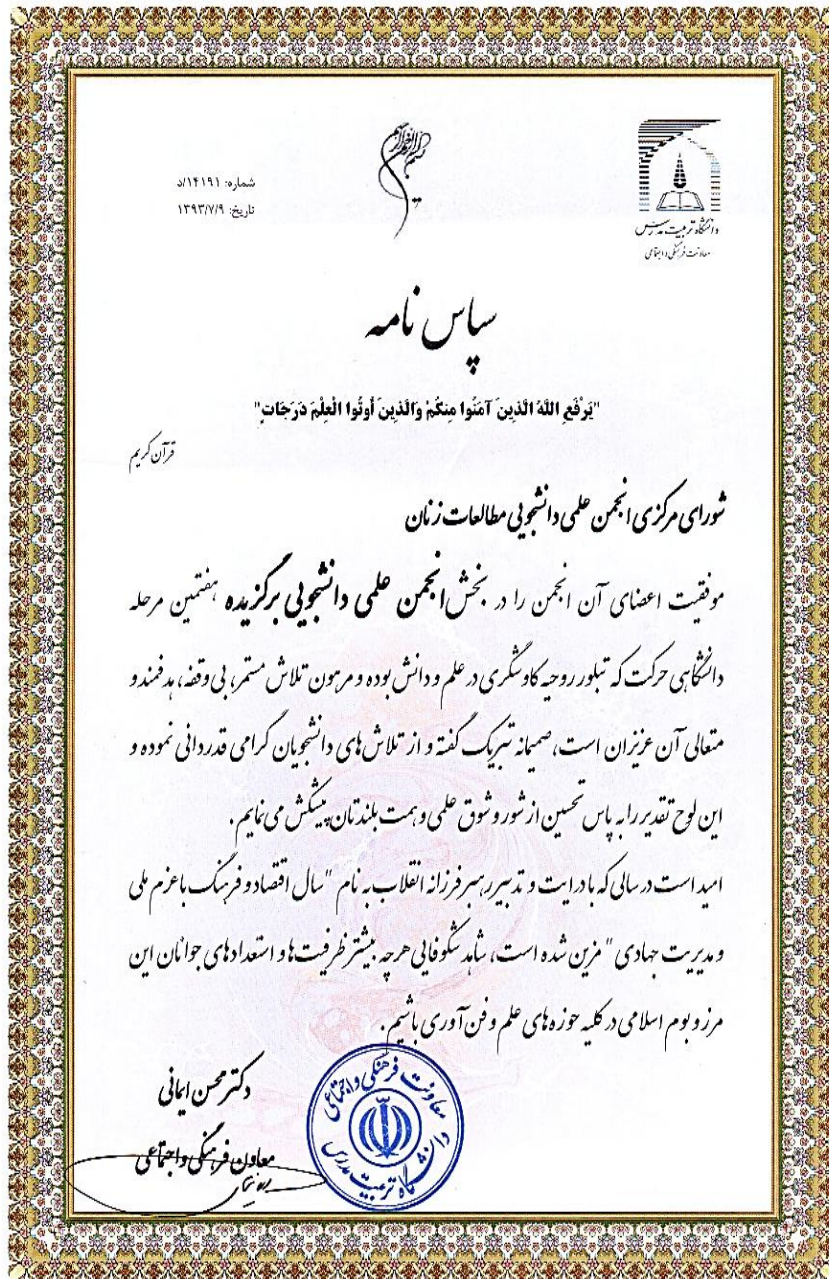 بسم الله الرحمن الرحیم
دانشگاه تربیت مدرس
معاونت فرهنگی و اجتماعی
شماره: ۱۴۱۹۱/د
تاریخ: ۱۳۹۳/۷/۹
سپاس نامه
"يَرْفَعِ اللَّهُ الَّذِينَ آمَنُوا مِنكُمْ وَالَّذِينَ أُوتُوا الْعِلْمَ دَرَجَاتٍ"
قرآن کریم
شورای مرکزی انجمن علمی دانشجویی مطالعات زنان
موفقیت اعضای آن انجمن را در بخش انجمن علمی دانشجویی برگزیده هفتمین مرحله
دانشگاهی حرکت که تبلور روحیه کاوشگری در علم و دانش بوده و مرهون تلاش مستمر، بی وقفه، هدفمند و
متعالی آن عزیزان است، صمیمانه تبریک گفته و از تلاش های دانشجویان گرامی قدردانی نموده و
این لوح تقدیر را به پاس تحسین از شور و شوق علمی و همت بلندتان پیشکش می نمایم.
امید است در سالی که با درایت و تدبیر رهبر فرزانه انقلاب به نام "سال اقتصاد و فرهنگ با عزم ملی
و مدیریت جهادی" مزین شده است، شاهد شکوفایی هرچه بیشتر ظرفیت ها و استعدادهای جوانان این
مرز و بوم اسلامی در کلیه حوزه های علم و فن آوری باشیم.
دکتر محسن ایمانی
معاون فرهنگی و اجتماعی
معاونت فرهنگی و اجتماعی
دانشگاه تربیت مدرس